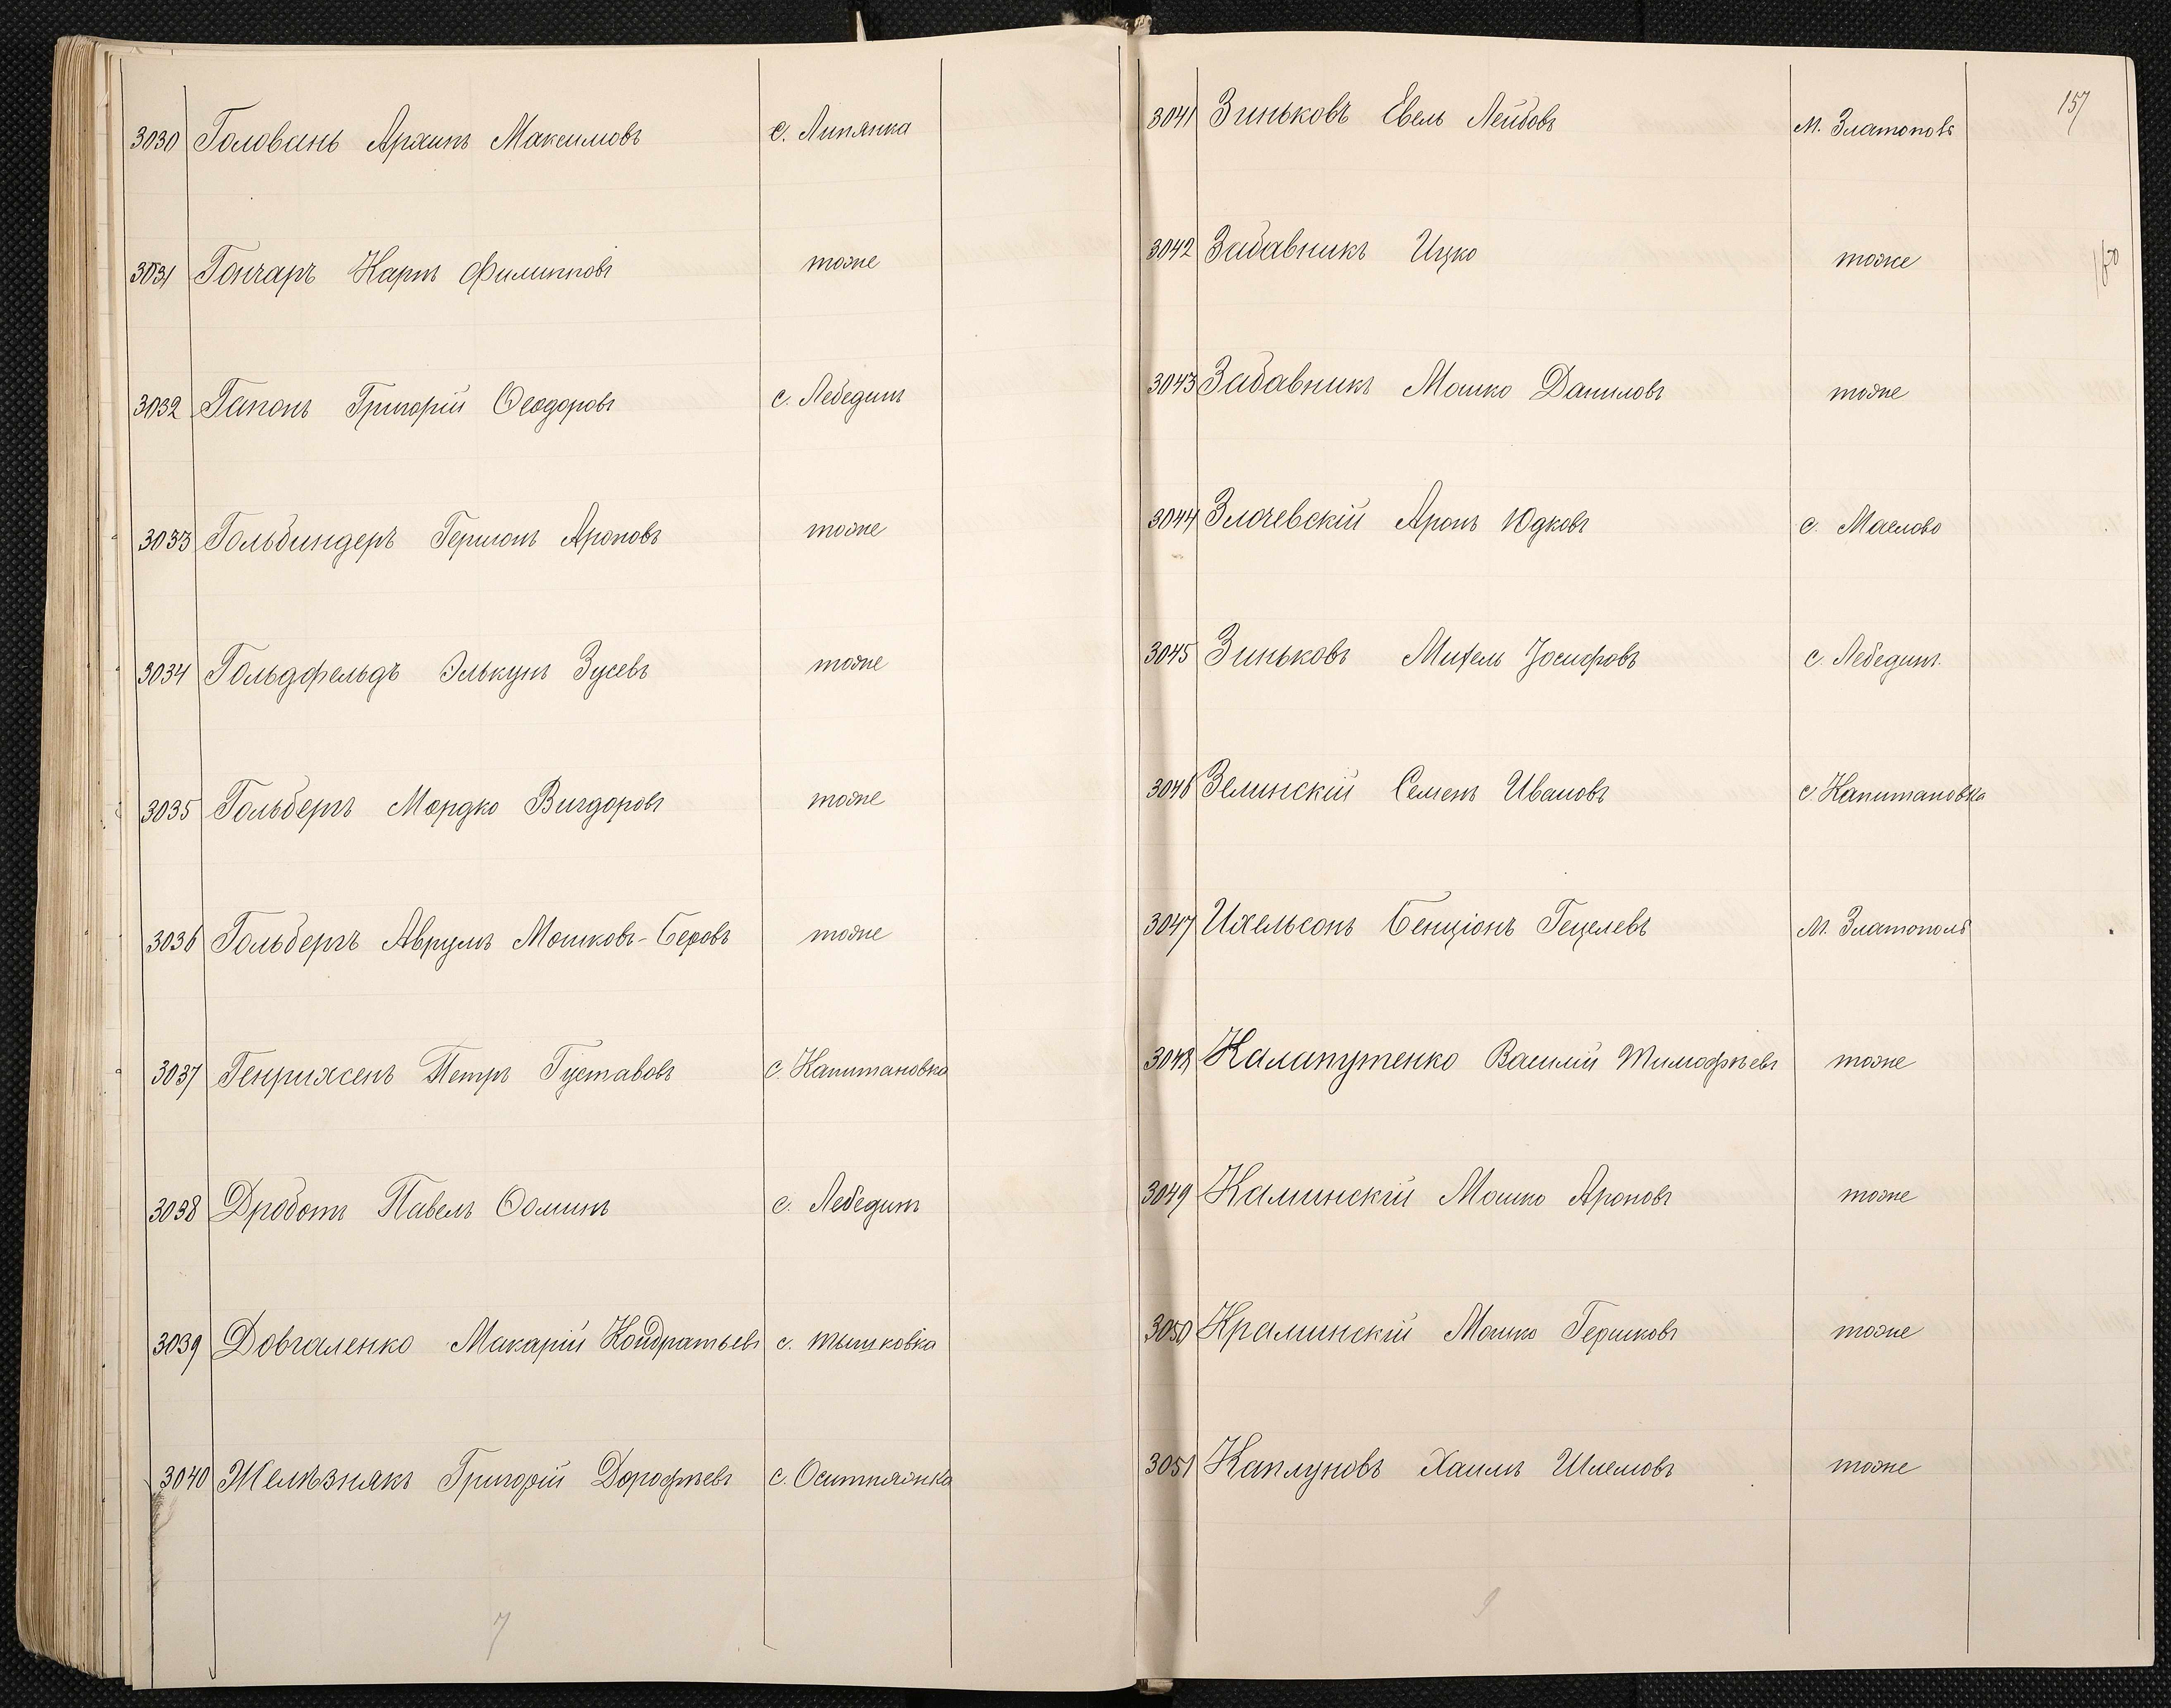 3030 Головань Архипъ Максимовъ с. Липянка
3031 Гончаръ Карпъ Филипповъ тоже
3032 Гапонъ Григорій Ѳеодоровъ с. Лебединъ
3033 Гольбиндеръ Гершонъ Ароновъ тоже
3034 Гольдфельдъ Элькунъ Зусевъ тоже
3035 Гольбергъ Мордко Вигдоровъ тоже
3036 Гольбергъ Аврумъ Мошковъ-Беровъ тоже
3037 Генрихсенъ Петръ Густавовъ с. Капитановка
3038 Дроботъ Павелъ Ѳоминъ с. Лебединъ
3039 Довгаленко Макарій Кондратьевъ с. Тышковка
3040 Желѣзнякъ Григорій Дорофѣевъ с. Оситняжка
7
157
3041 Зиньковъ Евель Лейбовъ м. Златополь
3042 Забавникъ Ицко тоже
150
3043 Забавникъ Мошко Даниловъ тоже
3044 Злочевскій Аронъ Юдковъ с. Маслово
3045 Зиньковъ Михель Іосифовъ с. Лебединъ.
3046 Зелинскій Семенъ Ивановъ с. Капитановка
3047 Ихельсонъ Бенціонъ Гецелевъ м. Златополь
3048 Калапутенко Василій Тимофѣевъ тоже
3049 Калинскій Мошко Ароновъ тоже
3050 Кралинскій Мошко Гершковъ тоже
3051 Каплуновъ Хаимъ Шлемовъ тоже
9